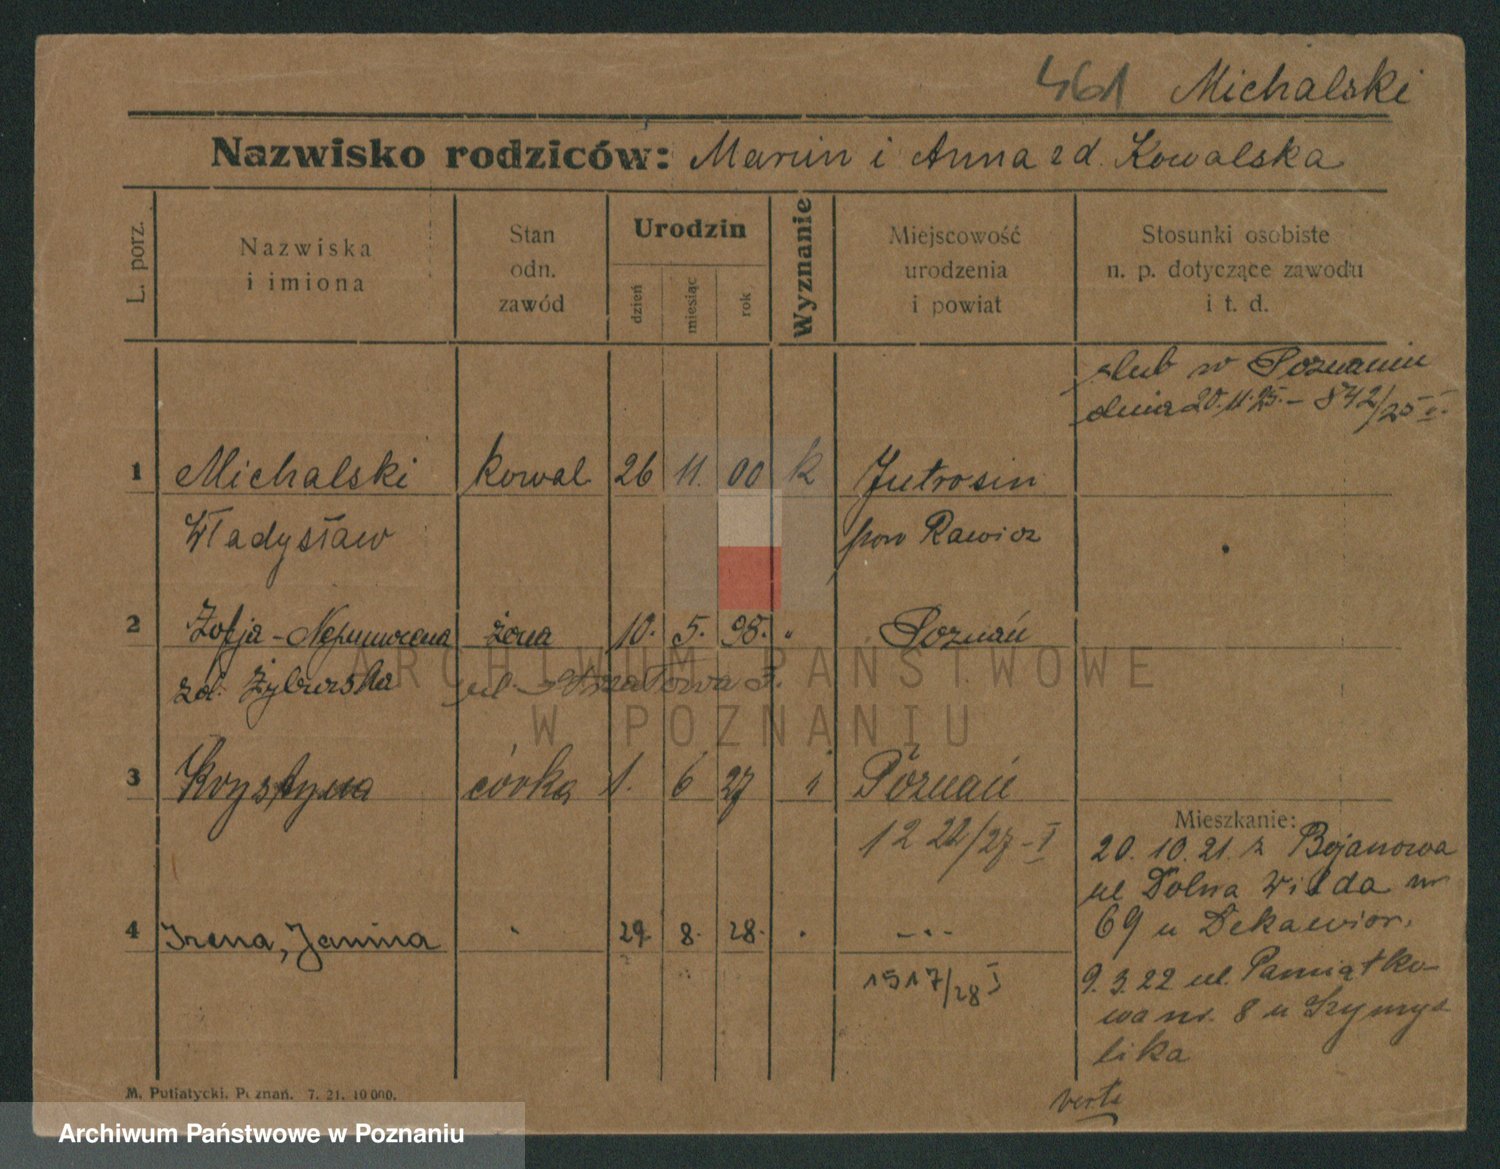 461 Michalski
Nazwisko rodziców: Marcin i Anna zd. Kowalska
L. porz.
Nazwiska
i imiona
Stan
odn.
zawód
Urodzin
dzień
miesiąc
rok
Wyznanie
Miejscowość
urodzenia
i powiat
Stosunki osobiste
n. p. dotyczące zawodu
i t. d.
ślub w Poznaniu
dnia 20.11.25. – 842/25 I.
1 Michalski kowal 26 11. 00 k Jutrosin
Władysław pow Rawicz
2 Zofja - Nepumocena żona 10. 5. 98. " Poznań
zd. Żyburska ul.
3 Krystyna córka 1. 6 27 " Poznań
1222/27 - I
Mieszkanie:
20. 10. 21. z Bojanowa
ul Dolna Wilda nr
69 u
4 Irena, Janina 29. 8. 28. - . -
1517/28 I
9. 3. 22 ul. Pamiątko-
wa nr. 8 u Szymys
lika
verte
M. Putiatycki, Poznań. 7. 21. 10 000.
ARCHIWUM PAŃSTWOWE
W POZNANIU
Archiwum Państwowe w Poznaniu